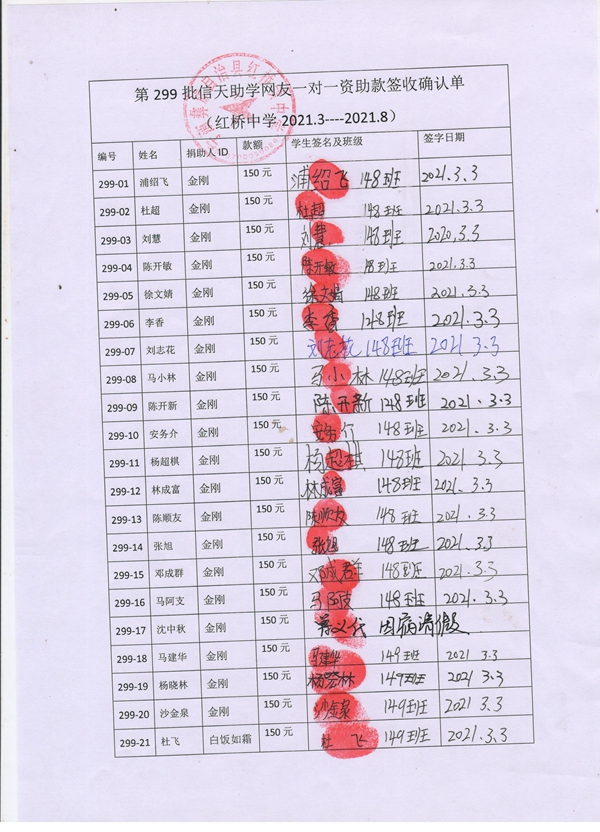 第 299 批信天助学网友一对一资助款签收确认单
（红桥中学 2021.3----2021.8）
编号 姓名 捐助人 ID 款额 学生签名及班级 签字日期
299-01 浦绍飞 金刚 150 元 浦绍飞 148班 2021.3.3
299-02 杜超 金刚 150 元 杜超 148班 2021.3.3
299-03 刘慧 金刚 150 元 刘慧 148班 2020.3.3
299-04 陈开敏 金刚 150 元 陈开敏 148班 2021.3.3
299-05 徐文婧 金刚 150 元 徐文婧 148班 2021.3.3
299-06 李香 金刚 150 元 李香 148班 2021.3.3
299-07 刘志花 金刚 150 元 刘志花 148班 2021.3.3
299-08 马小林 金刚 150 元 马小林 148班 2021.3.3
299-09 陈开新 金刚 150 元 陈开新 148班 2021.3.3
299-10 安务介 金刚 150 元 安务介 148班 2021.3.3
299-11 杨超棋 金刚 150 元 杨超棋 148班 2021.3.3
299-12 林成富 金刚 150 元 林成富 148班 2021.3.3
299-13 陈顺友 金刚 150 元 陈顺友 148班 2021.3.3
299-14 张旭 金刚 150 元 张旭 148班 2021.3.3
299-15 邓成群 金刚 150 元 邓成群 148班 2021.3.3
299-16 马阿支 金刚 150 元 马阿支 148班 2021.3.3
299-17 沈中秋 金刚 150 元 因病请假
299-18 马建华 金刚 150 元 马建华 149班 2021.3.3
299-19 杨晓林 金刚 150 元 杨晓林 149班 2021.3.3
299-20 沙金泉 金刚 150 元 沙金泉 149班 2021.3.3
299-21 杜飞 白饭如霜 150 元 杜飞 149班 2021.3.3